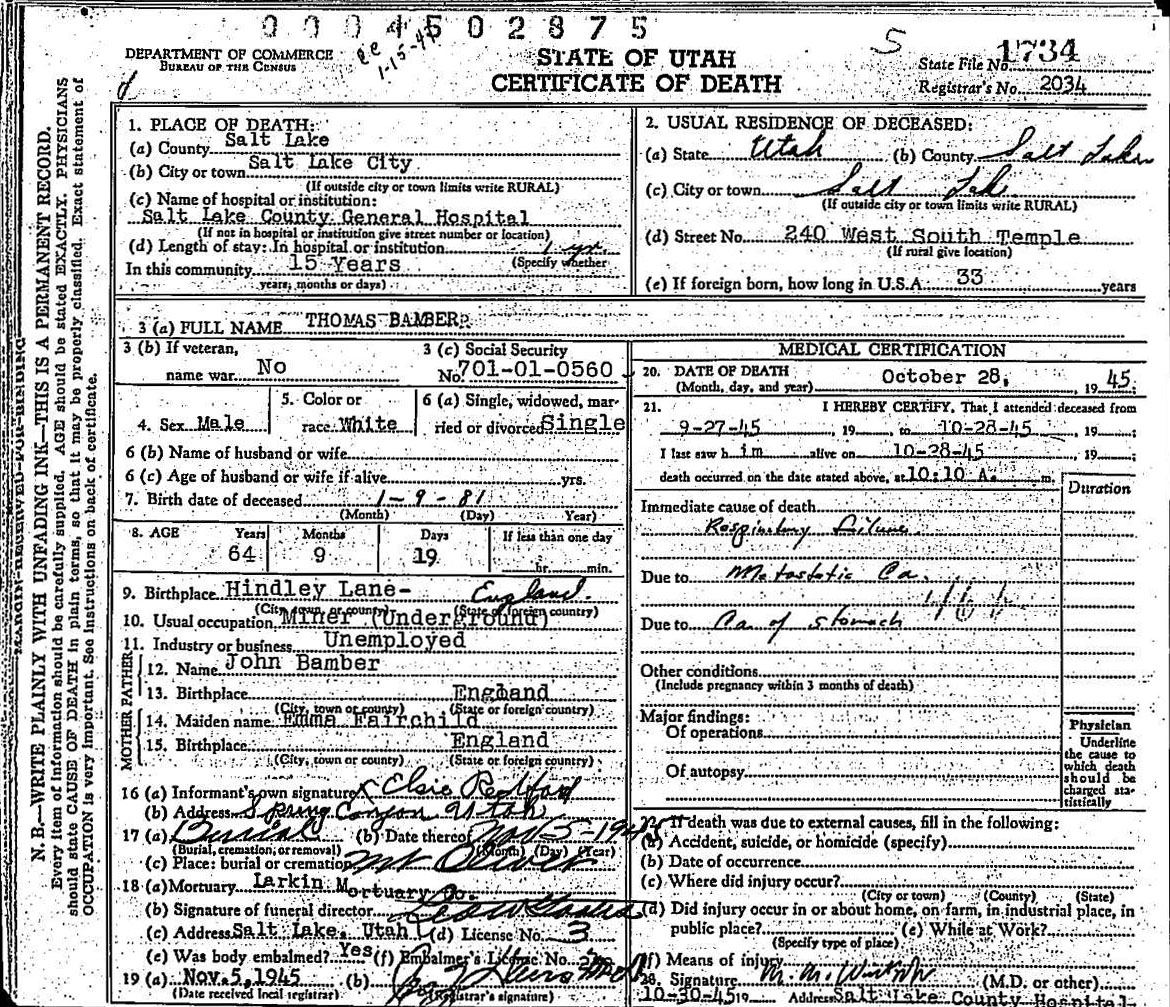 0004502875
1-15-4
5
DEPARTMENT OF COMMERCE
BUREAU OF THE CENSUS
STATE OF UTAH
CERTIFICATE OF DEATH
State File No. 1734
Registrar's No. 2034
MARGIN RESERVED FOR BINDING
N. B.—WRITE PLAINLY WITH UNFADING INK—THIS IS A PERMANENT RECORD.
Every item of information should be carefully supplied. AGE should be stated EXACTLY. PHYSICIANS
should state CAUSE OF DEATH in plain terms, so that it may be properly classified. Exact statement of
OCCUPATION is very important. See instructions on back of certificate.
1. PLACE OF DEATH:
(a) County Salt Lake
(b) City or town Salt Lake City
(If outside city or town limits write RURAL)
(c) Name of hospital or institution:
Salt Lake County General Hospital
(If not in hospital or institution give street number or location)
(d) Length of stay: In hospital or institution 1 yr
(Specify whether
In this community 15 Years
years, months or days)
2. USUAL RESIDENCE OF DECEASED:
(a) State Utah (b) County Salt Lake
(c) City or town Salt Lake
(If outside city or town limits write RURAL)
(d) Street No. 240 West South Temple
(If rural give location)
(e) If foreign born, how long in U.S.A. 33 years
3 (a) FULL NAME THOMAS BAMBER
3 (b) If veteran,
name war No
3 (c) Social Security
No. 701-01-0560
4. Sex Male
5. Color or
race White
6 (a) Single, widowed, mar-
ried or divorced Single
6 (b) Name of husband or wife
6 (c) Age of husband or wife if alive yrs.
7. Birth date of deceased 1-9-81
(Month) (Day) Year)
8. AGE Years Months Days If less than one day
64 9 19 hr. min.
9. Birthplace Hindley Lane- England
(City, town, or county) (State or foreign country)
10. Usual occupation Miner (Underground)
11. Industry or business Unemployed
FATHER
12. Name John Bamber
13. Birthplace England
(City, town or county) (State or foreign country)
MOTHER
14. Maiden name Emma Fairchild
15. Birthplace England
(City, town or county) (State or foreign country)
16 (a) Informant's own signature x Elsie Redford
(b) Address Spring Canyon Utah
17 (a) Burial (b) Date thereof Nov 5-1945
(Burial, cremation, or removal) (Month) (Day) (Year)
(c) Place: burial or cremation Mt Olivet
18 (a) Mortuary Larkin Mortuary Co.
(b) Signature of funeral director
(c) Address Salt Lake, Utah (d) License No. 3
(e) Was body embalmed? Yes (f) Embalmer's License No.
19 (a) Nov.5,1945 (b)
(Date received local registrar) (Registrar's signature)
MEDICAL CERTIFICATION
20. DATE OF DEATH October 28, 1945
(Month, day, and year)
21. I HEREBY CERTIFY, That I attended deceased from
9-27-45, 19 to 10-28-45, 19 ;
I last saw him alive on 10-28-45, 19 ;
death occurred on the date stated above, at 10:10 A. m.
Duration
Immediate cause of death
Respiratory failure
Due to Metastatic Ca.
Due to Ca. of stomach
Other conditions
(Include pregnancy within 3 months of death)
Major findings:
Of operations
Of autopsy
Physician
Underline
the cause to
which death
should be
charged sta-
tistically
If death was due to external causes, fill in the following:
(a) Accident, suicide, or homicide (specify)
(b) Date of occurrence
(c) Where did injury occur?
(City or town) (County) (State)
(d) Did injury occur in or about home, on farm, in industrial place, in
public place? (e) While at Work?
(Specify type of place)
(f) Means of injury
Signature (M.D. or other)
10-30-45 19 Address Salt Lake County Hospital